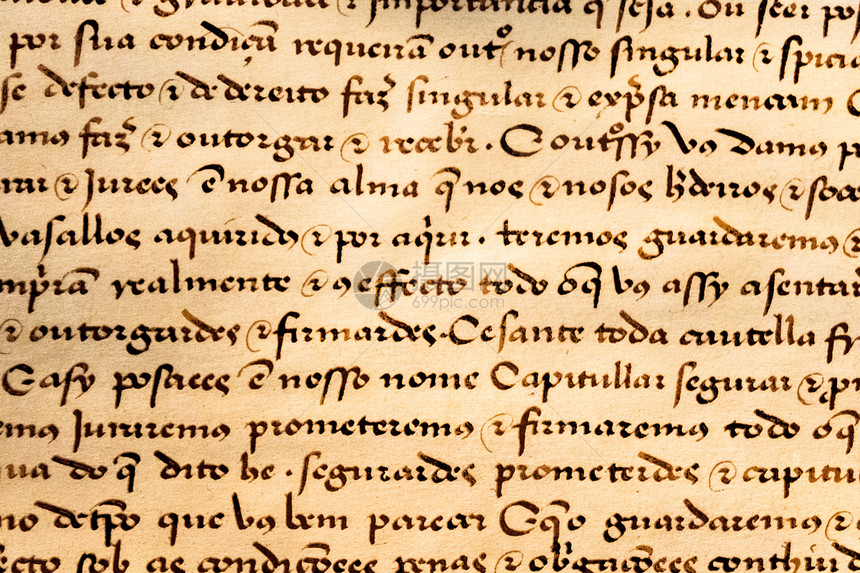 importancia q̃ seja. Ou seer
por sua condiçã requeirã outº nosso singular ⁊
se defecto ⁊ de dereito faz̃ singular ⁊ exp̃sa mencam
faz̃ ⁊ outorgar ⁊ receb̃r. E outºssy vos damos
⁊ Jurees ẽ nossa alma q̃ nos ⁊ nosos h̃deiros ⁊
vasallos aquiridos ⁊ por aq̃rir. teremos guardaremos ⁊
realmente ⁊ cõ effecto todo oq̃ vos assy
⁊ outorgardes ⁊ firmardes. Cesante toda cautella
E asy posaees ẽ nosso nome Capitullar segurar ⁊
Juraremos prometeremos ⁊ firmaremos todo oq̃
do q̃ dito he. segurardes prometerdes ⁊
det̃po que vos bem parecer E q̃ o guardaremos ⁊
sob as condiçõees penas ⁊ ob̃gaçõees
摄图网
699pic.com